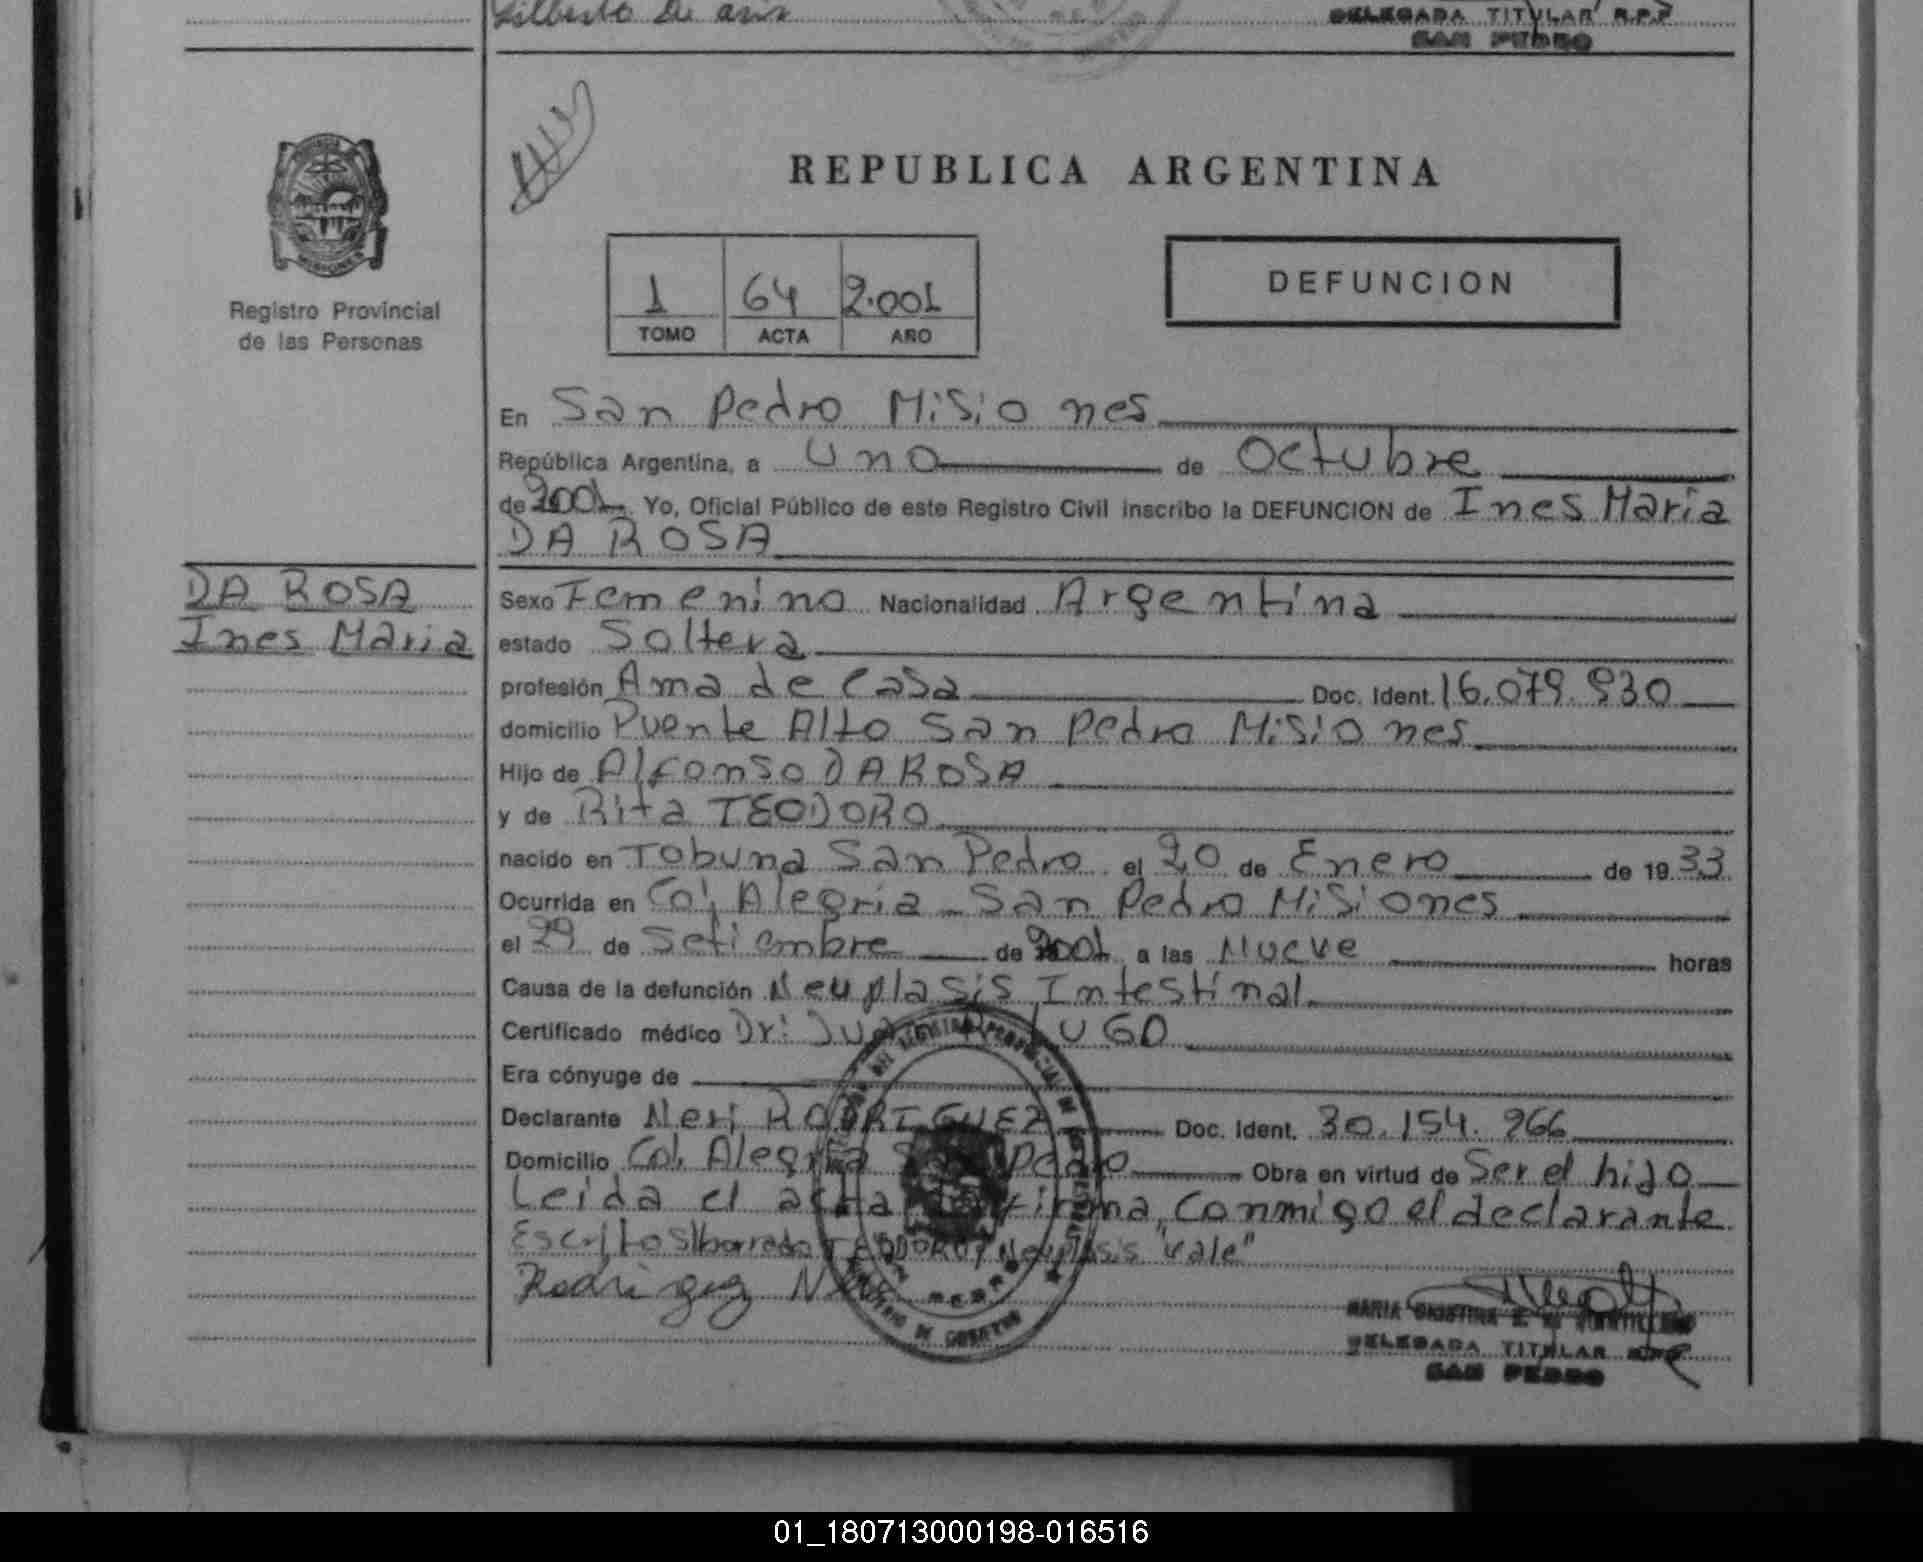 Gilberto De
DELEGADA TITULAR R.P.P
SAN PEDRO
REPUBLICA ARGENTINA
1 64 2.001
TOMO ACTA AÑO
DEFUNCION
MISIONES
Registro Provincial
de las Personas
En San Pedro Misiones
República Argentina, a Uno de Octubre
de 2001 Yo, Oficial Público de este Registro Civil inscribo la DEFUNCION de Ines Maria
DA ROSA
DA ROSA
Ines Maria
Sexo Femenino Nacionalidad Argentina
estado Soltera
profesión Ama de Casa Doc. Ident. 16.079.930
domicilio Puente Alto San Pedro Misiones
Hijo de Alfonso DA ROSA
y de Rita TEODORO
nacido en Tobuna San Pedro el 20 de Enero de 1933
Ocurrida en Col. Alegria San Pedro Misiones
el 29 de Setiembre de 2001 a las Nueve horas
Causa de la defunción Neuplasis Intestinal
Certificado médico Dr: LUGO
Era cónyuge de
Declarante Neri RODRIGUEZ Doc. Ident. 30.154.966
Domicilio Col. Alegria San Pedro Obra en virtud de Ser el hijo
Leida el acta firma, Conmigo el declarante
Escrito S/borrado TEODORO y Neuplasis "vale"
Rodriguez
MARIA CRISTINA
DELEGADA TITULAR
SAN PEDRO
01_180713000198-016516